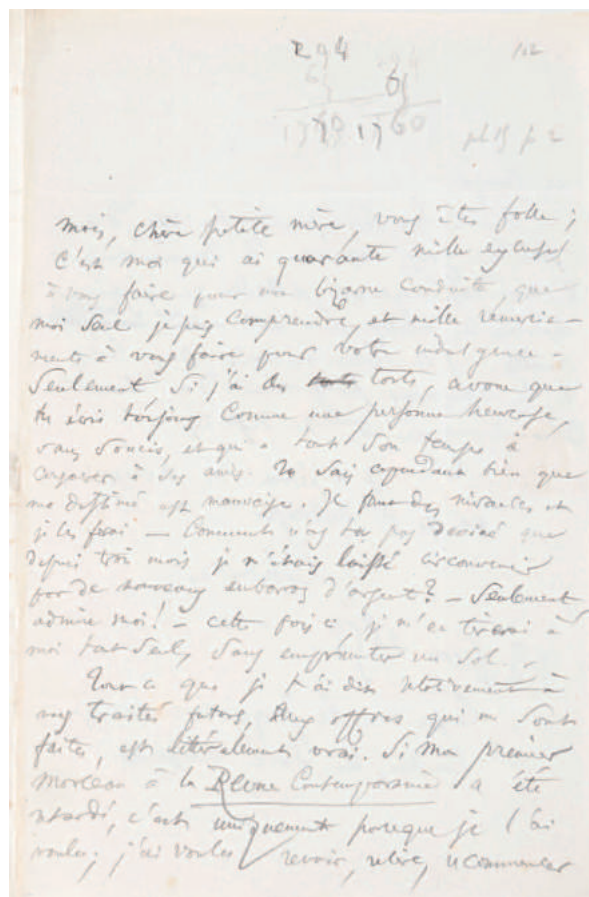 294
65 65
1760 1760
Mais, chère petite mère, vous êtes folle ;
c'est moi qui ai quarante mille excuses
à vous faire pour ma bizarre conduite, que
moi seul je puis comprendre, et mille remercie-
ments à vous faire pour votre indulgence. -
Seulement, si j'ai des torts, avoue que
tu écris toujours comme une personne heureuse,
sans soucis, et qui a tout son temps à
à ses amis. Tu sais cependant bien que
ma destinée est mauvaise. Il faut des miracles et
je les ferai — Comment n'as-tu pas deviné que
depuis trois mois je m'étais laissé circonvenir
par de nouveaux embarras d'argent ? — Seulement
admire moi ! — cette fois ci, je m'en tirerai à
moi tout seul, sans emprunter un sol. -
Tout ce que je t'ai dit relativement à
mes traités futurs, aux offres qui me sont
faites, est littéralement vrai. Si mon premier
morceau à la Revue Contemporaine a été
retardé, c'est uniquement parce que je l'ai
voulu ; j'ai voulu revoir, relire, recommencer